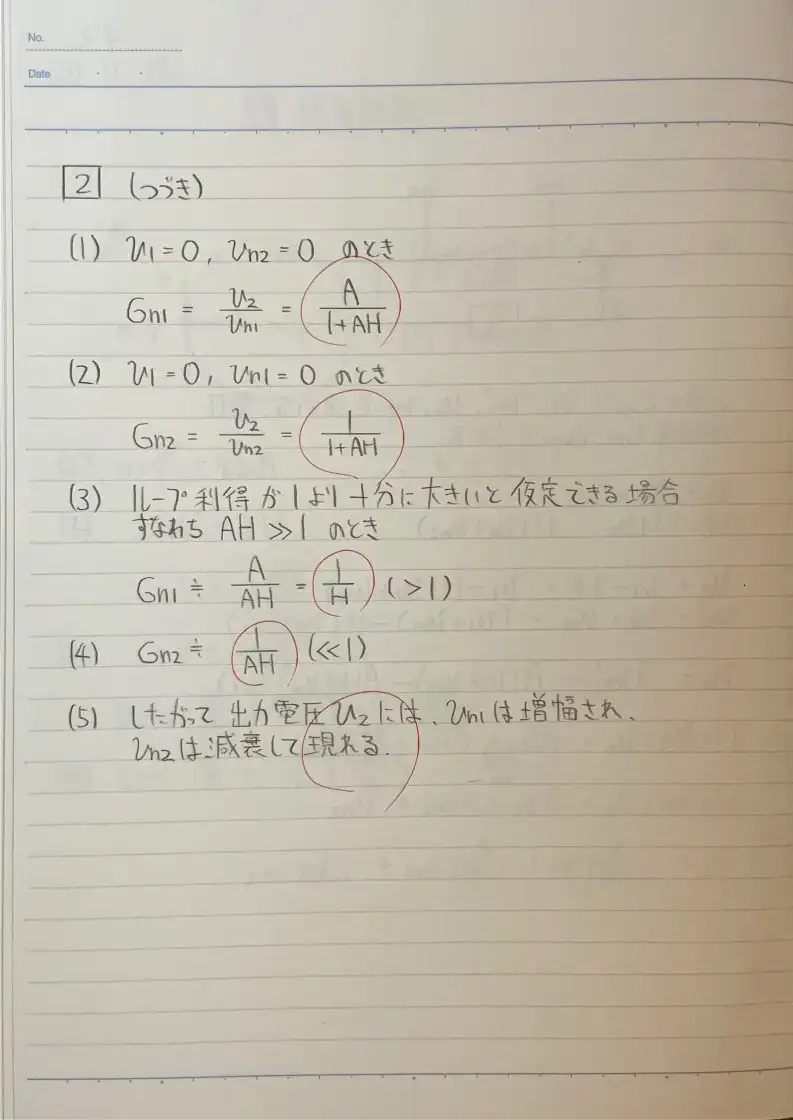 No.
Date
2 (つづき)
(1) v1 = 0, vn2 = 0 のとき
Gn1 = v2/vn1 = A/(1+AH)
(2) v1 = 0, vn1 = 0 のとき
Gn2 = v2/vn2 = 1/(1+AH)
(3) ループ利得が1より十分に大きいと仮定できる場合
すなわち AH ≫ 1 のとき
Gn1 ≒ A/AH = 1/H (>1)
(4) Gn2 ≒ 1/AH (≪1)
(5) したがって出力電圧 v2 には、vn1 は増幅され、
vn2 は減衰して現れる.